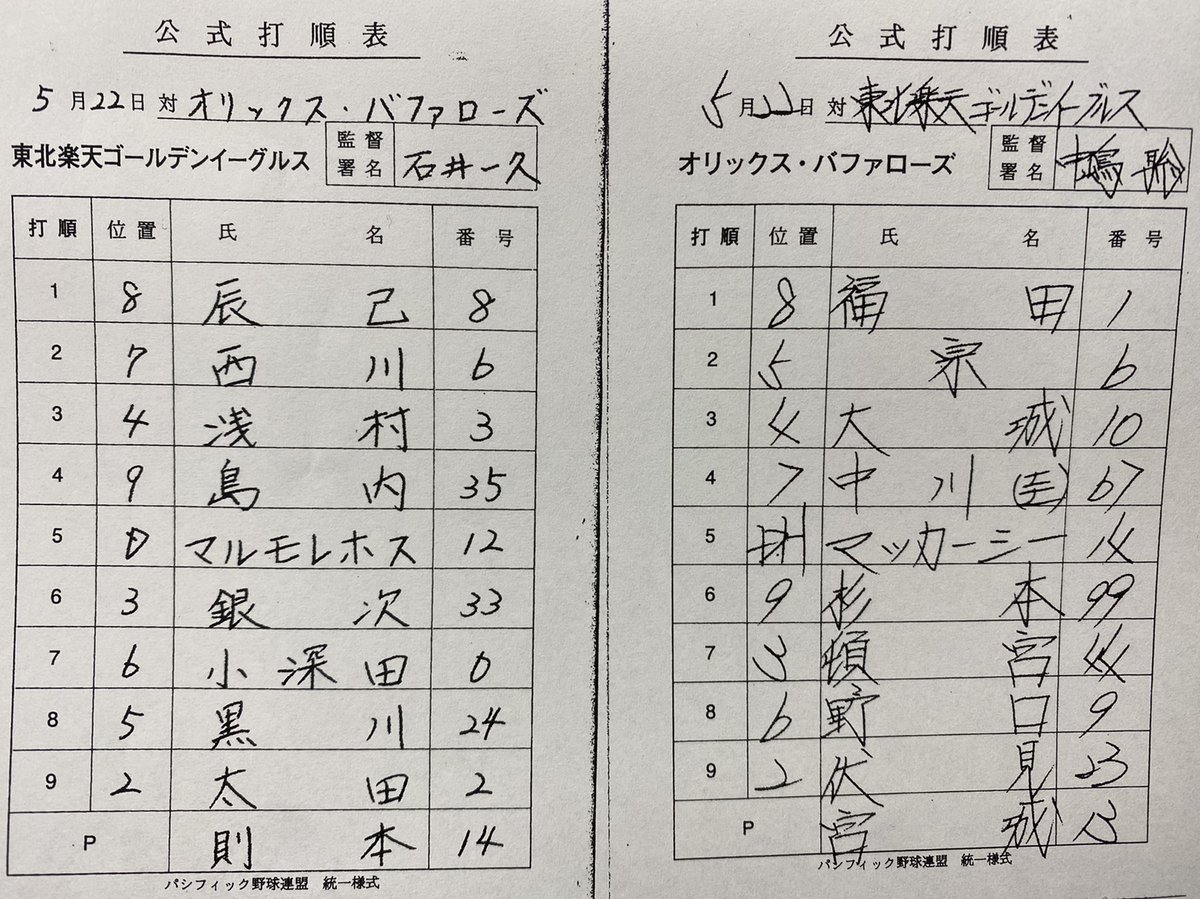 公式打順表
5月22日 対 オリックス・バファローズ
東北楽天ゴールデンイーグルス 監督署名 石井一久
打順 位置 氏名 番号
1 8 辰己 8
2 7 西川 6
3 4 浅村 3
4 9 島内 35
5 D マルモレホス 12
6 3 銀次 33
7 6 小深田 0
8 5 黒川 24
9 2 太田 2
P 則本 14
パシフィック野球連盟 統一様式
公式打順表
5月22日 対 東北楽天ゴールデンイーグルス
オリックス・バファローズ 監督署名 中嶋聡
打順 位置 氏名 番号
1 8 福田 1
2 5 宗 6
3 4 大城 10
4 7 中川(圭) 67
5 DH マッカーシー 4
6 9 杉本 99
7 3 頓宮 44
8 6 野口 9
9 2 伏見 23
P 宮城 13
パシフィック野球連盟 統一様式